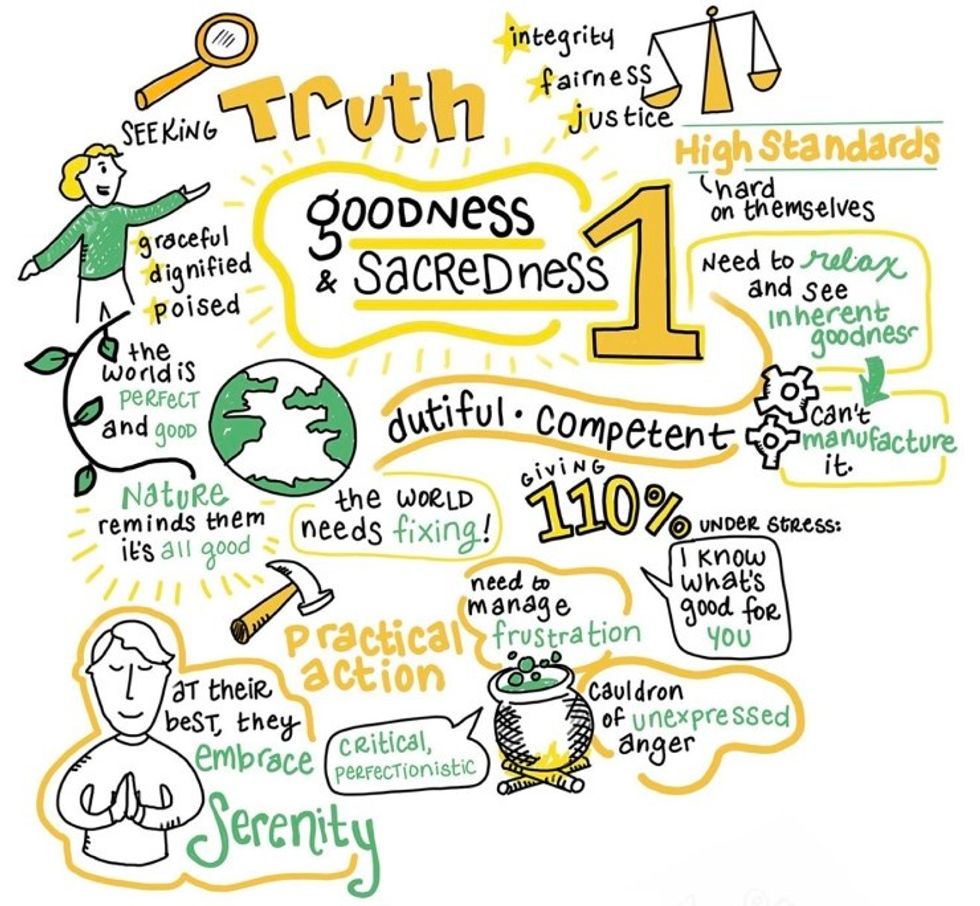 SEEKING
Truth
integrity
fairness
justice
High Standards
hard
on themselves
graceful
dignified
poised
goodness
& Sacredness
1
Need to relax
and see
inherent
goodness
can't
manufacture
it.
the
world is
perfect
and good
dutiful · competent
Nature
reminds them
it's all good
the world
needs fixing!
GIVING
110%
UNDER STRESS:
I know
what's
good for
you
Practical
action
need to
manage
frustration
at their
best, they
embrace
Serenity
critical,
perfectionistic
cauldron
of unexpressed
anger